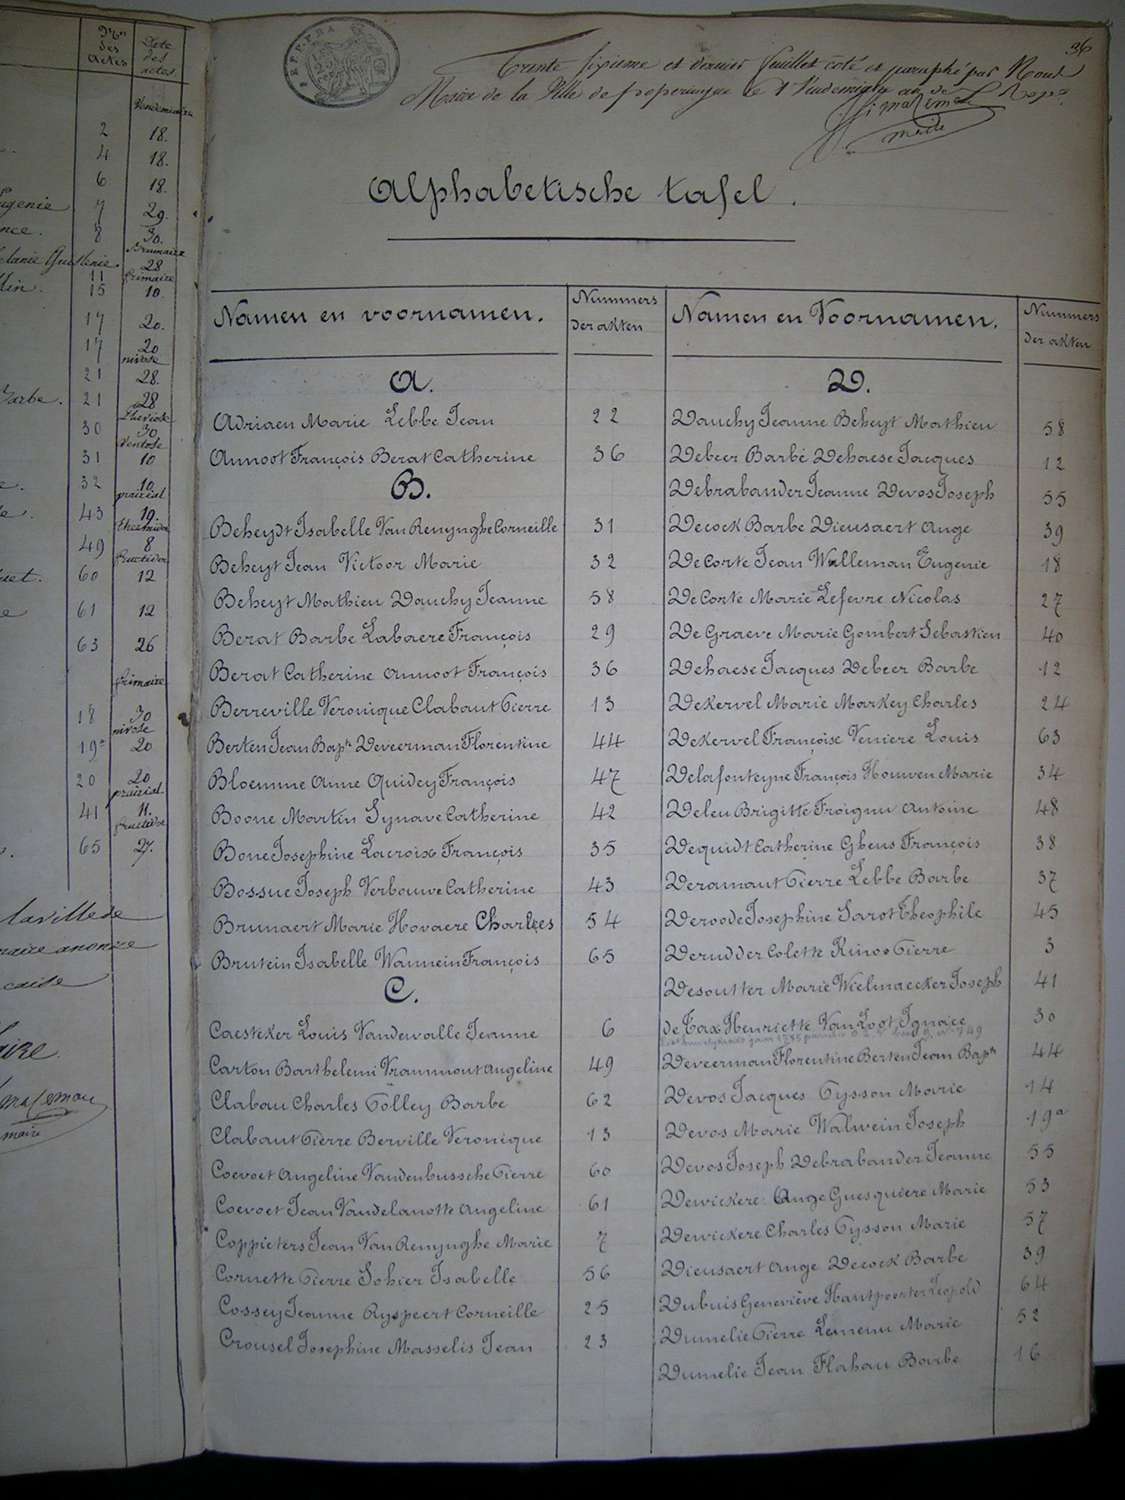 Nros
des
actes
Date
des
actes
Vendemiaire
2 18.
4 18.
6 18.
ugenie 7 29.
nce. 8 30.
Brumaire
28
frimaire
lin. 11
15 10.
17 20.
17 20
nivose
21 28.
Barbe. 21 28
30 30
Ventose
31 10
32 10.
prairial
43 19.
49 8
fructidor
60 12
61 12
63 26
frimaire
18 30
nivose
19a 20
20 20
prairial
41 11.
fructidor
65 27.
la ville de
maire
36
Trente sixieme et dernier feuillet coté et paraphé par Nous
Maire de la Ville de poperingue le 1 Vendemiaire an
maire
Alphabetische tafel.
Namen en voornamen.
Nummers
der akten
Namen en Voornamen.
Nummers
der akten
A.
Adriaen Marie Lebbe Jean 22
Annoot François Berat Catherine 36
B.
Beheydt Isabelle Van Renynghe Corneille 31
Beheyt Jean Victoor Marie 32
Beheyt Mathieu Dauchy Jeanne 58
Berat Barbe Labaere François 29
Berat Catherine Annoot François 36
Berreville Veronique Clabaut Pierre 13
Berten Jean Bapte Deveerman Florentine 44
Bloemme Anne Quidey François 47
Boone Martin Synave Catherine 42
Bone Josephine Lacroix François 35
Bossue Joseph Verbouwe Catherine 43
Brunaert Marie Hovaere Charles 54
Brutein Isabelle Wannein François 65
C.
Caesteker Louis Vandewalle Jeanne 6
Carton Barthelemi Vrammout Angeline 49
Clabau Charles Tolley Barbe 62
Clabaut Pierre Berville Veronique 13
Coevoet Angeline Vandenbussche Pierre 60
Coevoet Jean Vandelanotte Angeline 61
Coppieters Jean Van Renynghe Marie 7
Cornette Pierre Sohier Isabelle 56
Cossey Jeanne Ryspeert Corneille 25
Crousel Josephine Masselis Jean 23
D.
Dauchy Jeanne Beheyt Mathieu 58
Debeer Barbe Dehaese Jacques 12
Debrabander Jeanne Devos Joseph 55
Decock Barbe Dieusaert Ange 39
De Corte Jean Walleman Eugenie 18
De Corte Marie Lefevre Nicolas 27
De Graeve Marie Gombert Sebastien 40
Dehaese Jacques Debeer Barbe 12
Dekervel Marie Markey Charles 24
Dekervel Françoise Veniere Louis 63
Delafonteyne François Houwen Marie 34
Deleu Brigitte Froignu Antoine 48
Dequidt Catherine Gheus François 38
Deramaut Pierre Lebbe Barbe 37
Deroode Josephine Sarot Theophile 45
Derudder Colette Kinoo Pierre 3
Desoutter Marie Wielmaecker Joseph 41
de Tax Henriette Van Loot Ignace 30
Deveerman Florentine Berten Jean Bapte 44
Devos Jacques Tysson Marie 14
Devos Marie Walwein Joseph 19a
Devos Joseph Debrabander Jeanne 55
Dewickere Ange Guesquiere Marie 53
Dewickere Charles Tysson Marie 57
Dieusaert Ange Decock Barbe 39
Dubuis Geneviève Hautpoorter Leopold 64
Dumelie Pierre Lemenu Marie 52
Dumelie Jean Flahau Barbe 16